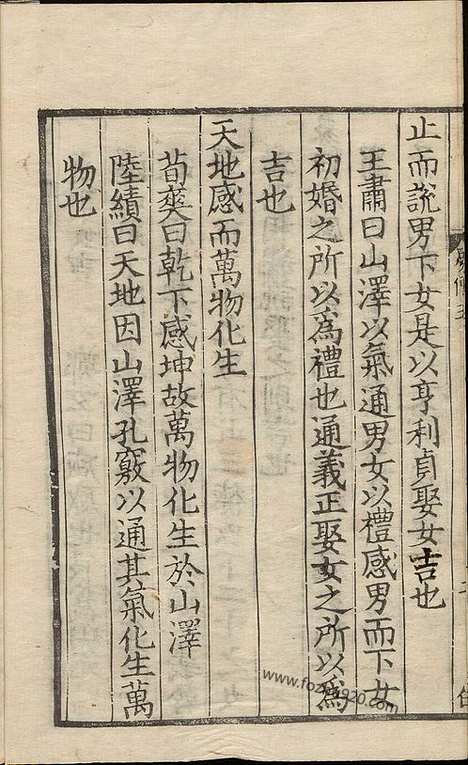 止而說男下女是以亨利貞娶女吉也
王肅曰山澤以氣通男女以禮感男而下女
初婚之所以爲禮也通義正娶女之所以爲
吉也
天地感而萬物化生
荀爽曰乾下感坤故萬物化生於山澤
陸績曰天地因山澤孔竅以通其氣化生萬
物也